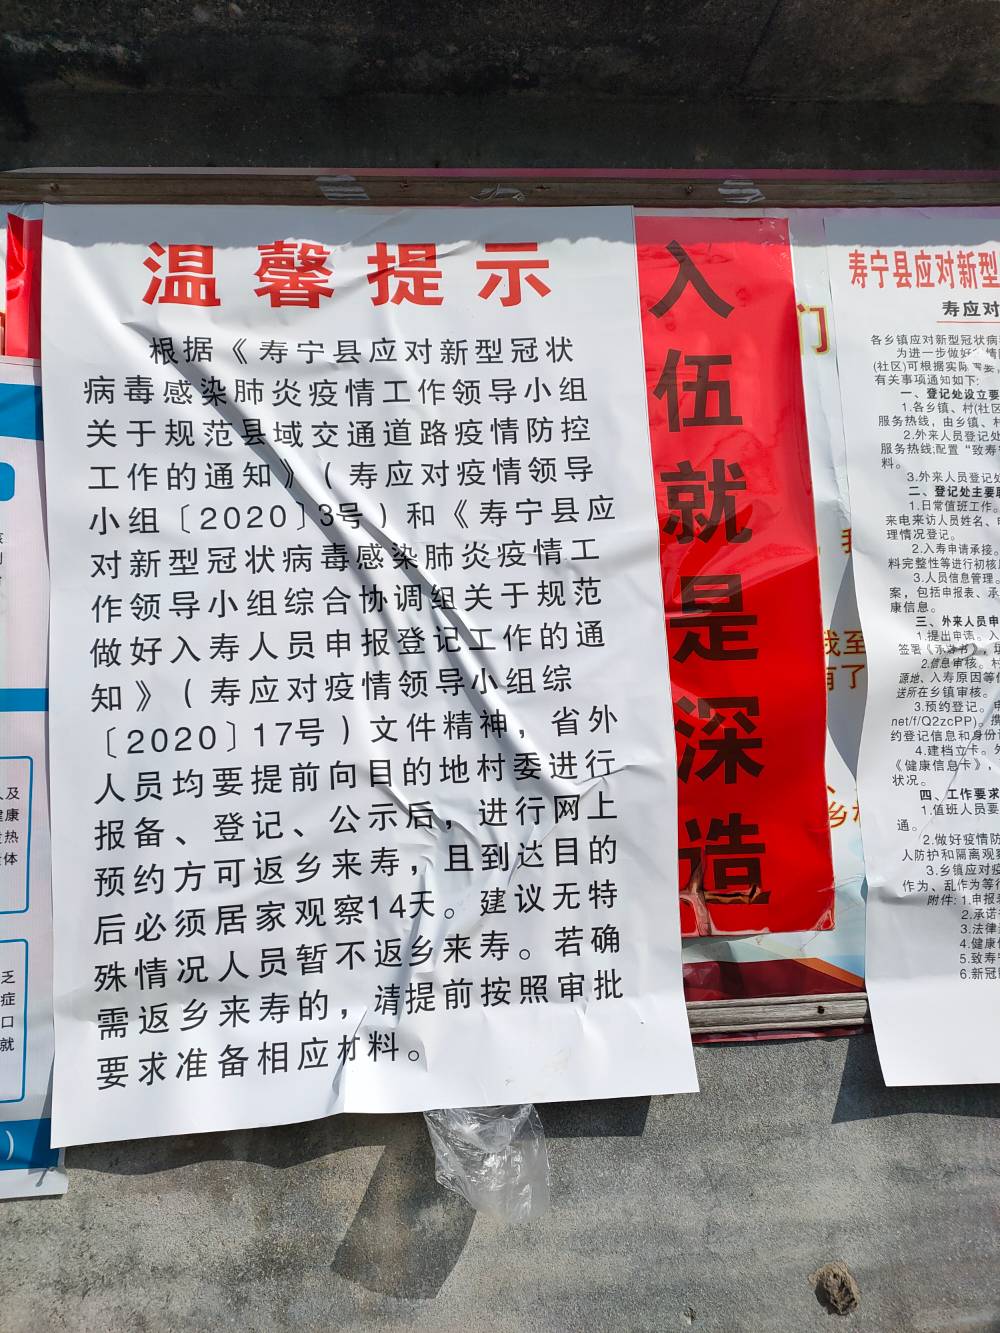 温馨提示
根据《寿宁县应对新型冠状
病毒感染肺炎疫情工作领导小组
关于规范县域交通道路疫情防控
工作的通知》（寿应对疫情领导
小组〔2020〕3号）和《寿宁县应
对新型冠状病毒感染肺炎疫情工
作领导小组综合协调组关于规范
做好入寿人员申报登记工作的通
知》（寿应对疫情领导小组综
〔2020〕17号）文件精神，省外
人员均要提前向目的地村委进行
报备、登记、公示后，进行网上
预约方可返乡来寿，且到达目的
后必须居家观察14天。建议无特
殊情况人员暂不返乡来寿。若确
需返乡来寿的，请提前按照审批
要求准备相应材料。
入伍就是深造
们
我至
有了
乡村
寿宁县应对新型
寿应对
各乡镇应对新型冠状病
为进一步做好
(社区)可根据实际需要,
有关事项通知如下:
一、登记处设立要
1.各乡镇、村(社区
服务热线，由乡镇、村
2.外来人员登记处
服务热线;配置“致寿
料。
3.外来人员登记处
二、登记处主要
1.日常值班工作。
来电来访人员姓名、
理情况登记。
2.入寿申请承接。
料完整性等进行初核
3.人员信息管理。
案，包括申报表、承
康信息。
三、外来人员申
1.提出申请。入
签署《承诺书》，
2.信息审核。村
源地、入寿原因等
送所在乡镇审核。
3.预约登记。申
net/f/Q2zcPP)。
约登记信息和身份
4.建档立卡。外
《健康信息卡》，
状况。
四、工作要求
1.值班人员要
通。
2.做好疫情防
人防护和隔离观察
3.乡镇应对疫
作为、乱作为等行
附件: 1.申报表
2.承诺书
3.法律
4.健康
5.致寿
6.新冠
人及
健康
发热
体
乏
症
口
就